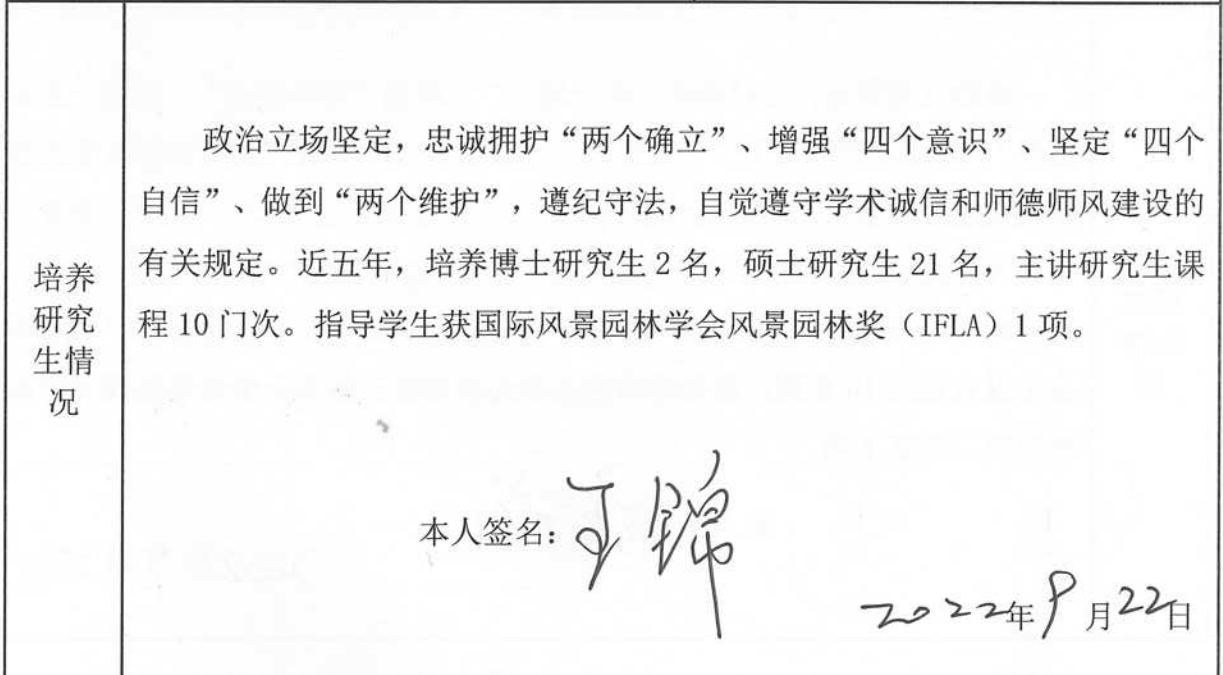 培养
研究
生情
况
政治立场坚定，忠诚拥护“两个确立”、增强“四个意识”、坚定“四个
自信”、做到“两个维护”，遵纪守法，自觉遵守学术诚信和师德师风建设的
有关规定。近五年，培养博士研究生2名，硕士研究生21名，主讲研究生课
程10门次。指导学生获国际风景园林学会风景园林奖（IFLA）1项。
本人签名：王锦
2022年9月22日